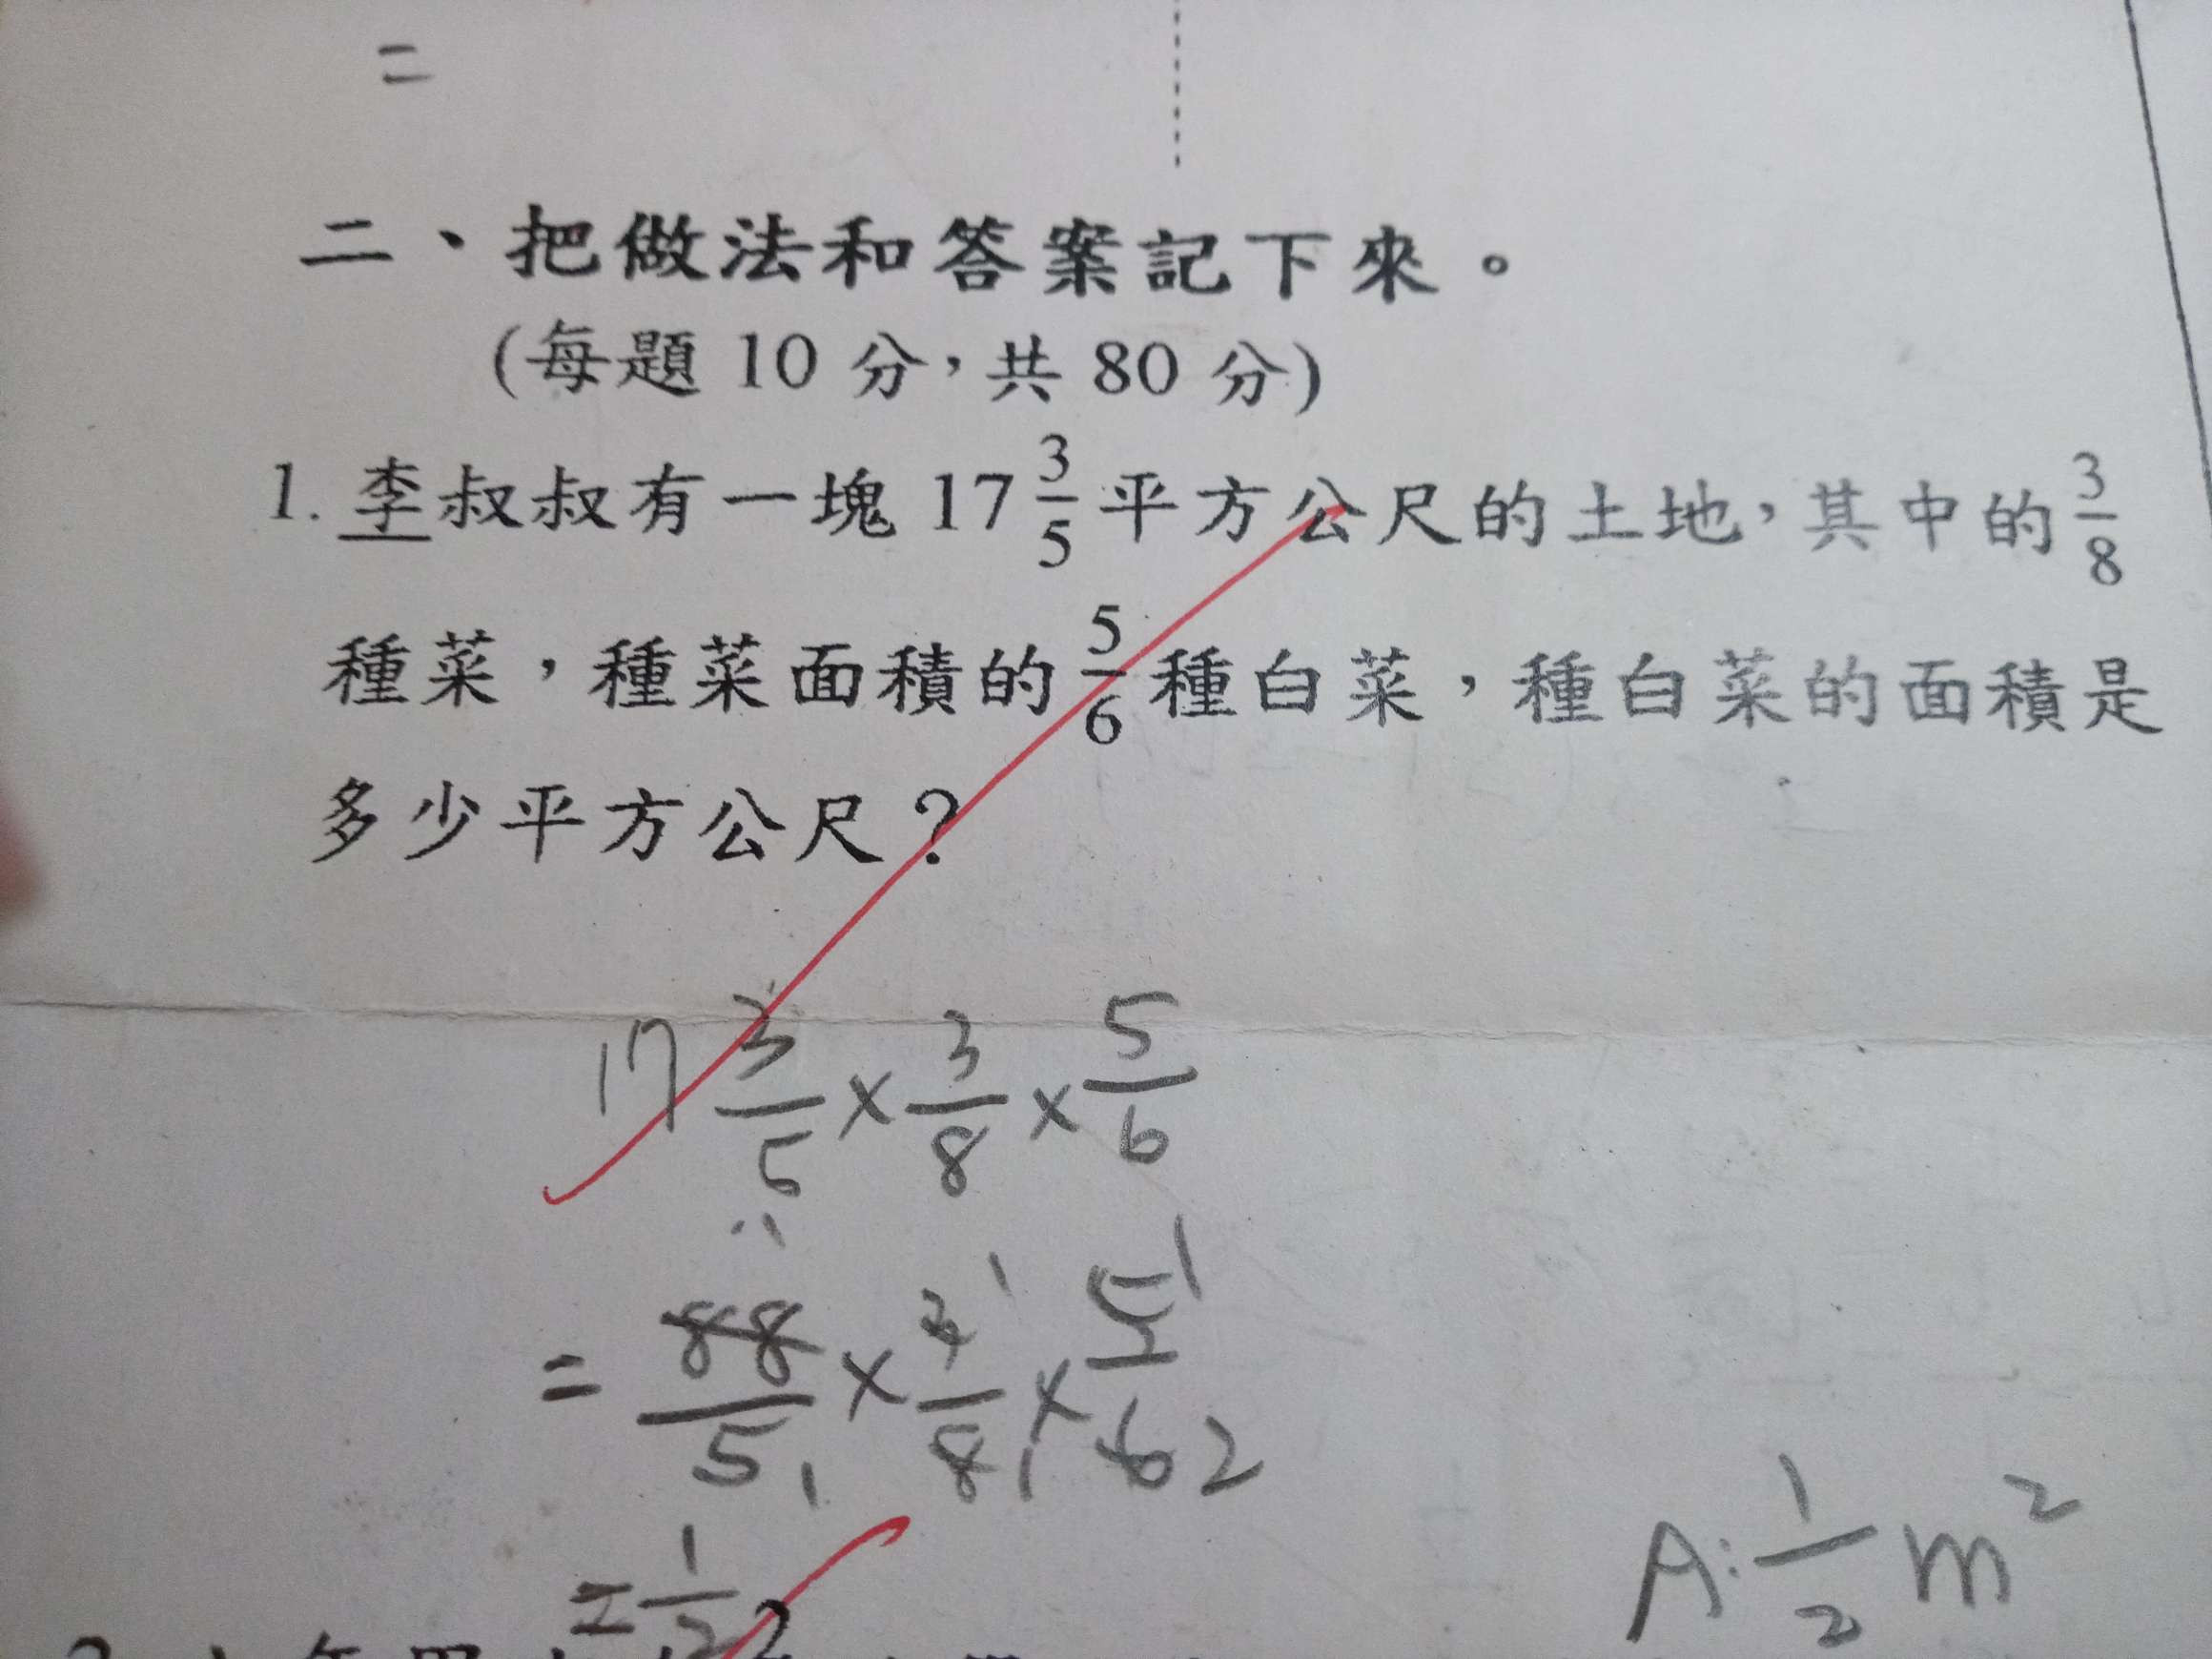 =
二、把做法和答案記下來。
(每題 10 分，共 80 分)
1. 李叔叔有一塊 17 3/5 平方公尺的土地，其中的 3/8
種菜，種菜面積的 5/6 種白菜，種白菜的面積是
多少平方公尺？
17 3/5 × 3/8 × 5/6
= 88/5 1 × 3/8 1 1 × 5/6 1 2
= 1/2
A: 1/2 m²